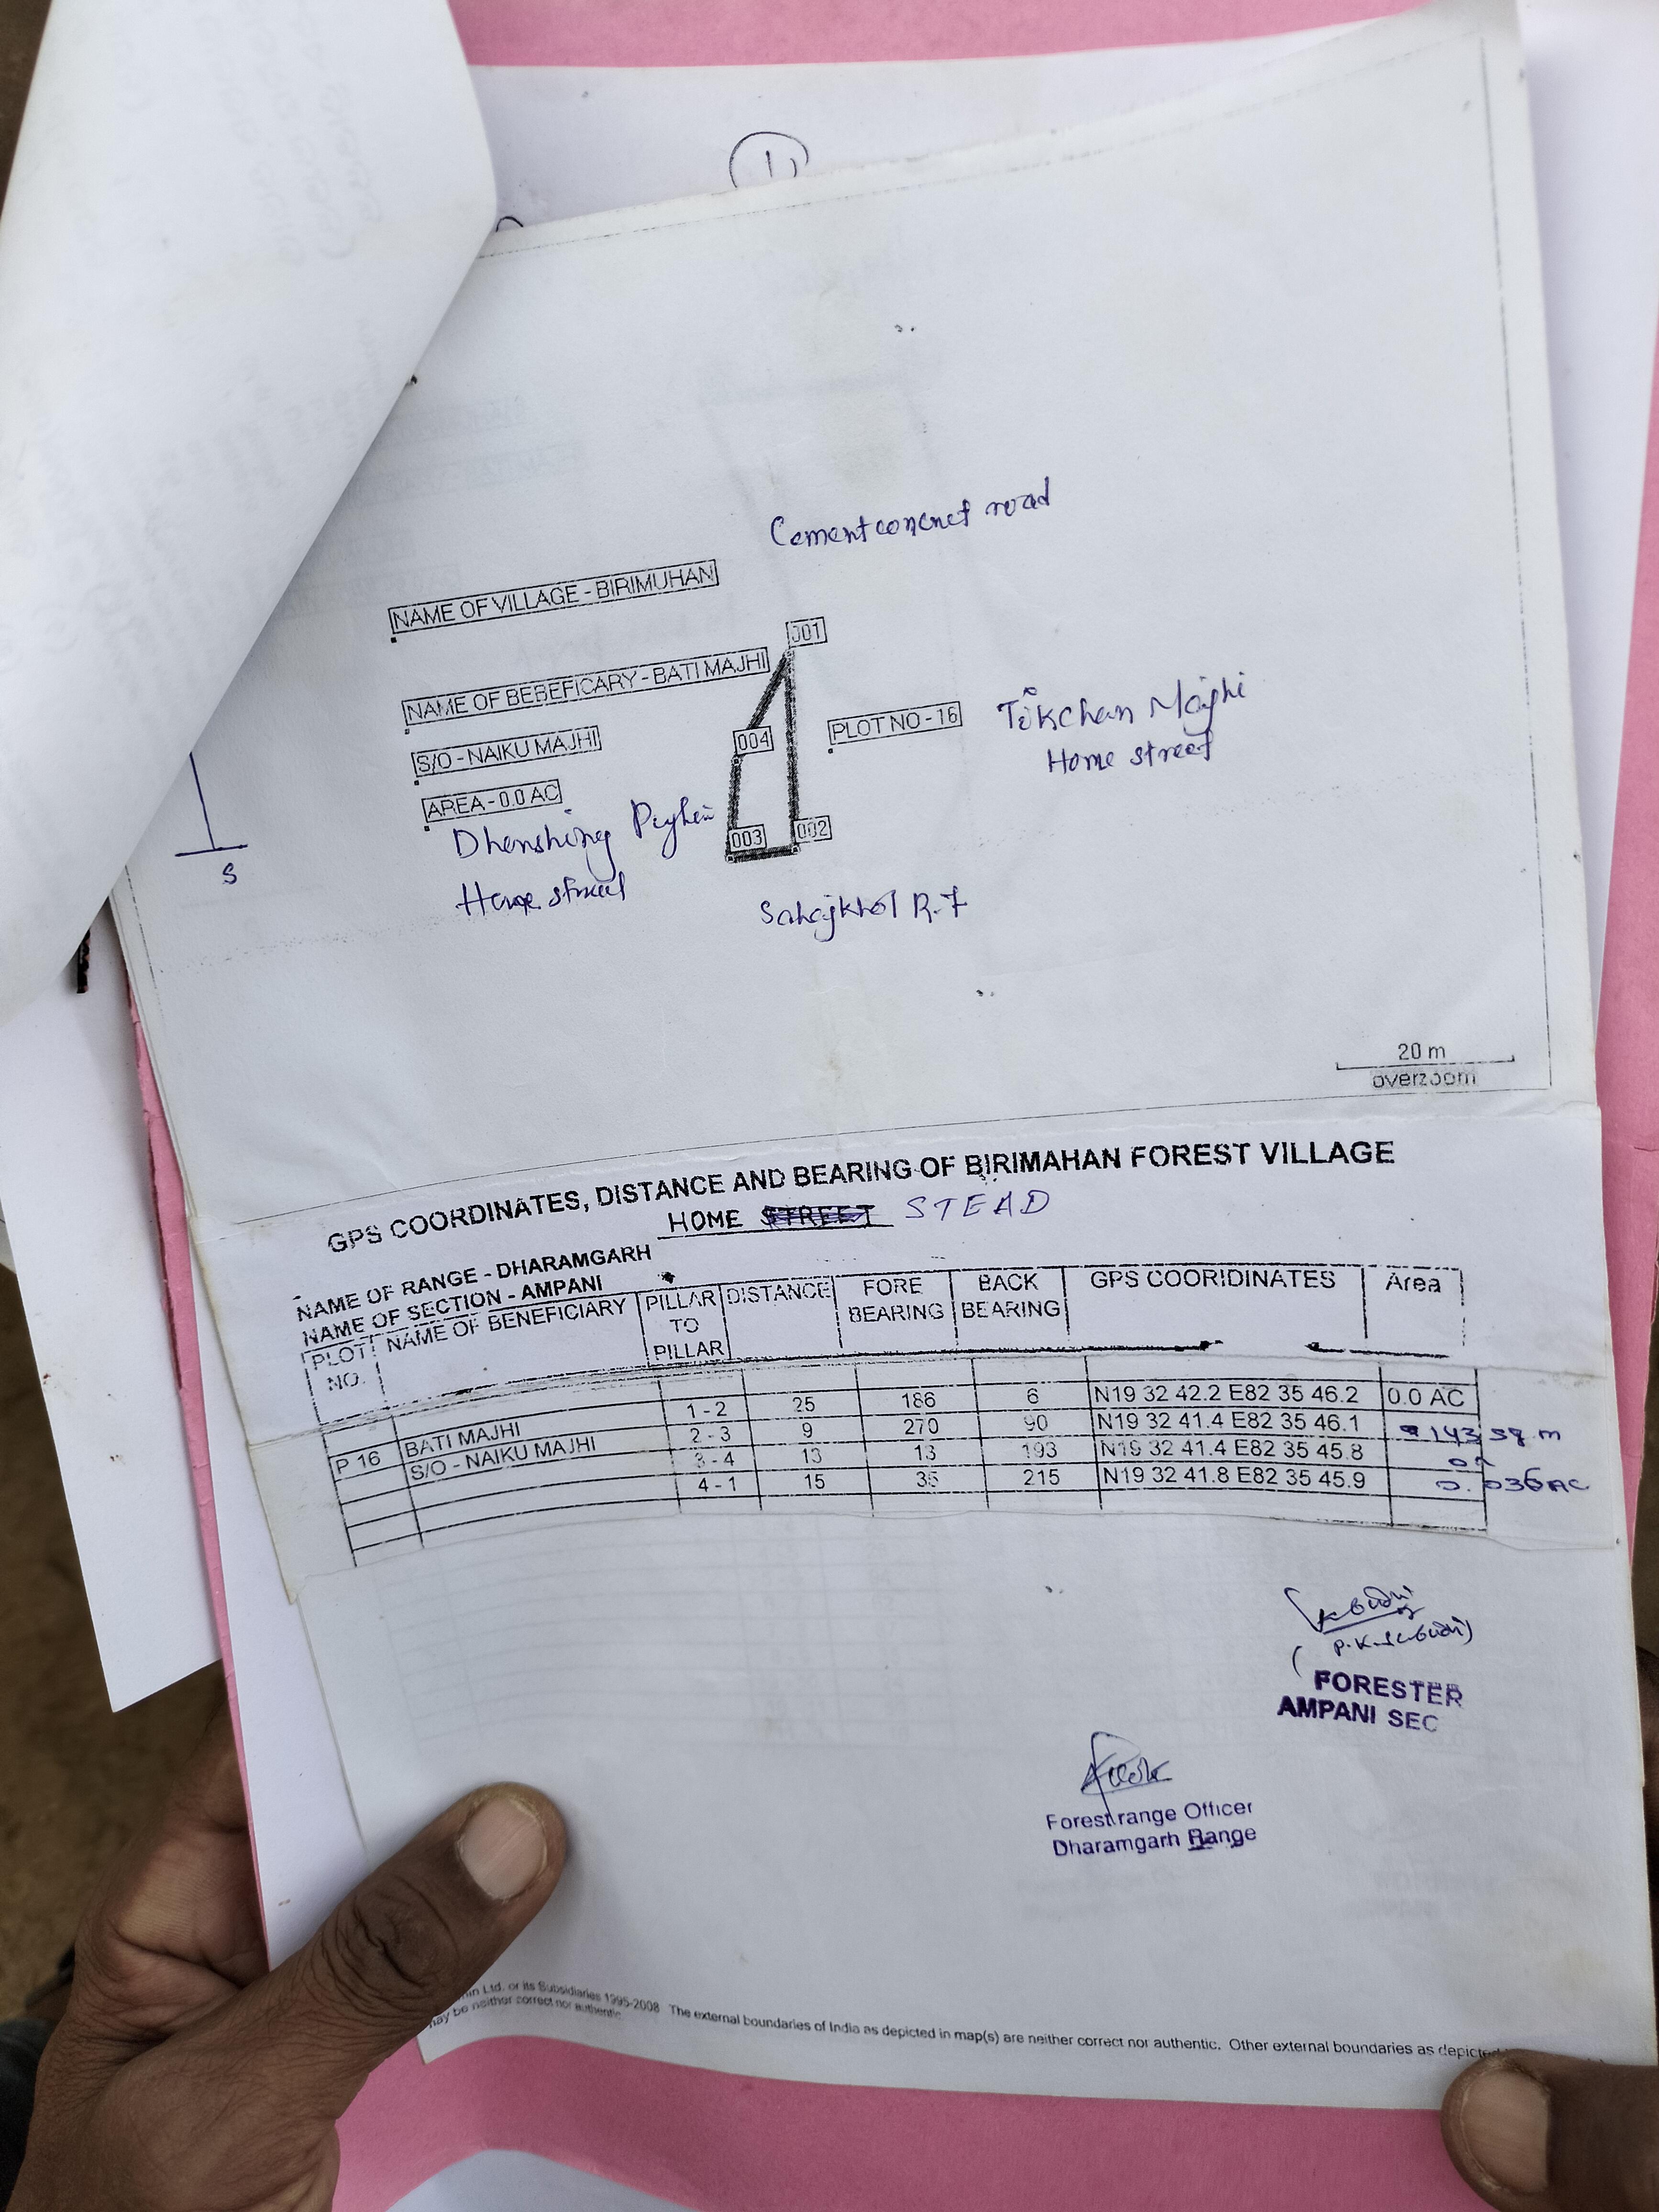 Cementconcret road
NAME OF VILLAGE - BIRIMUHAN
001
NAME OF BEBEFICARY - BATI MAJHI
004
PLOT NO - 16
Tikchan Majhi
Home street
S/O - NAIKU MAJHI
AREA - 0.0 AC
Dhenshing
Home street
003
002
S
R.F
20 m
overzoom
GPS COORDINATES, DISTANCE AND BEARING OF BIRIMAHAN FOREST VILLAGE
HOME STREET STEAD
NAME OF RANGE - DHARAMGARH
NAME OF SECTION - AMPANI
PLOT NO. NAME OF BENEFICIARY PILLAR TO PILLAR DISTANCE FORE BEARING BACK BEARING GPS COORIDINATES Area
1 - 2 25 186 6 N19 32 42.2 E82 35 46.2 0.0 AC
P 16 BATI MAJHI 2 - 3 9 270 90 N19 32 41.4 E82 35 46.1 143 sq. m
S/O - NAIKU MAJHI 3 - 4 13 13 193 N19 32 41.4 E82 35 45.8 or
4 - 1 15 35 215 N19 32 41.8 E82 35 45.9 0.036 AC
FORESTER
AMPANI SEC
Forest range Officer
Dharamgarh Range
Ltd. or its Subsidiaries 1995-2008 The external boundaries of India as depicted in map(s) are neither correct nor authentic. Other external boundaries as
may be neither correct nor authentic.